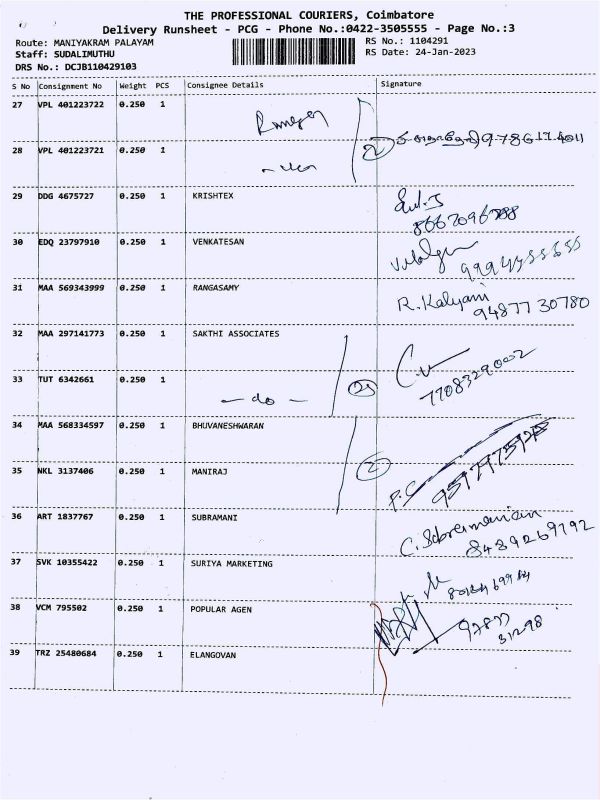 THE PROFESSIONAL COURIERS, Coimbatore
Delivery Runsheet - PCG - Phone No.:0422-3505555 - Page No.:3
Route: MANIYAKRAM PALAYAM
Staff: SUDALIMUTHU
DRS No.: DCJB110429103
RS No.: 1104291
RS Date: 24-Jan-2023
S No Consignment No Weight PCS Consignee Details Signature
27 VPL 401223722 0.250 1
28 VPL 401223721 0.250 1
2
29 DDG 4675727 0.250 1 KRISHTEX
30 EDQ 23797910 0.250 1 VENKATESAN
31 MAA 569343999 0.250 1 RANGASAMY R. Kalyani
94877 30780
32 MAA 297141773 0.250 1 SAKTHI ASSOCIATES
33 TUT 6342661 0.250 1 - do - 2
7708329002
34 MAA 568334597 0.250 1 BHUVANESHWARAN
35 NKL 3137406 0.250 1 MANIRAJ 2 P.C
36 ART 1837767 0.250 1 SUBRAMANI C. Subramanian
8489269192
37 SVK 10355422 0.250 1 SURIYA MARKETING
38 VCM 795502 0.250 1 POPULAR AGEN 97877
31298
39 TRZ 25480684 0.250 1 ELANGOVAN